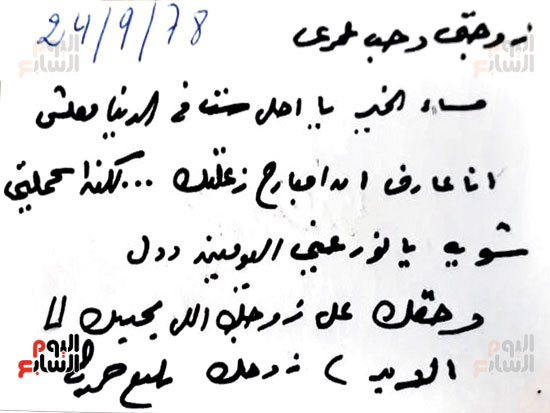 24/9/78
زوجتى وحب عمرى
مساء الخير يا احلى ست فى الدنيا معلش
انا عارف ان امبارح زعلتك ... لكن تحمليني
شويه يا نور عيني اليومين دول
وحقك على زوجك اللى بيحبك
الابد زوجك
اليوم السابع
اليوم السابع
اليوم السابع